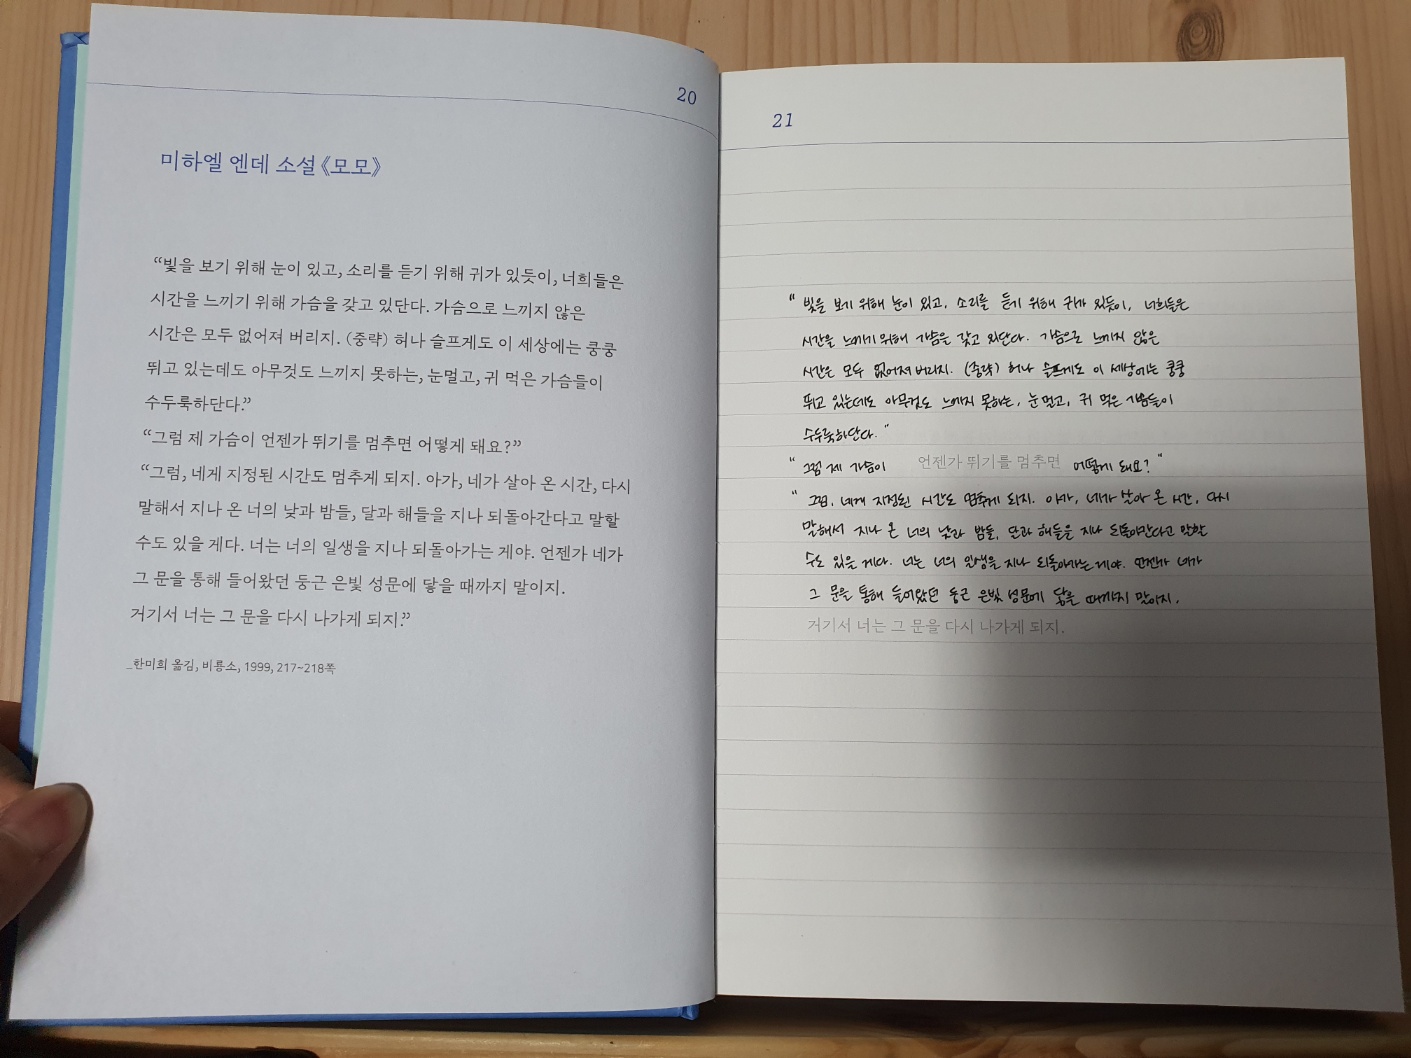 20
미하엘 엔데 소설 《모모》
“빛을 보기 위해 눈이 있고, 소리를 듣기 위해 귀가 있듯이, 너희들은
시간을 느끼기 위해 가슴을 갖고 있단다. 가슴으로 느끼지 않은
시간은 모두 없어져 버리지. (중략) 허나 슬프게도 이 세상에는 쿵쿵
뛰고 있는데도 아무것도 느끼지 못하는, 눈멀고, 귀 먹은 가슴들이
수두룩하단다.”
“그럼 제 가슴이 언젠가 뛰기를 멈추면 어떻게 돼요?”
“그럼, 네게 지정된 시간도 멈추게 되지. 아가, 네가 살아 온 시간, 다시
말해서 지나 온 너의 낮과 밤들, 달과 해들을 지나 되돌아간다고 말할
수도 있을 게다. 너는 너의 일생을 지나 되돌아가는 게야. 언젠가 네가
그 문을 통해 들어왔던 둥근 은빛 성문에 닿을 때까지 말이지.
거기서 너는 그 문을 다시 나가게 되지.”
_한미희 옮김, 비룡소, 1999, 217~218쪽
21
“ 빛을 보기 위해 눈이 있고, 소리를 듣기 위해 귀가 있듯이, 너희들은
시간을 느끼기 위해 가슴을 갖고 있단다. 가슴으로 느끼지 않은
시간은 모두 없어져 버리지. (중략) 허나 슬프게도 이 세상에는 쿵쿵
뛰고 있는데도 아무것도 느끼지 못하는, 눈 멀고, 귀 먹은 가슴들이
수두룩하단다. ”
“ 그럼 제 가슴이 언젠가 뛰기를 멈추면 어떻게 돼요? ”
“ 그럼, 네게 지정된 시간도 멈추게 되지. 아가, 네가 살아 온 시간, 다시
말해서 지나 온 너의 낮과 밤들, 달과 해들을 지나 되돌아간다고 말할
수도 있을 게다. 너는 너의 일생을 지나 되돌아가는 게야. 언젠가 네가
그 문을 통해 들어왔던 둥근 은빛 성문에 닿을 때까지 말이지.
거기서 너는 그 문을 다시 나가게 되지.